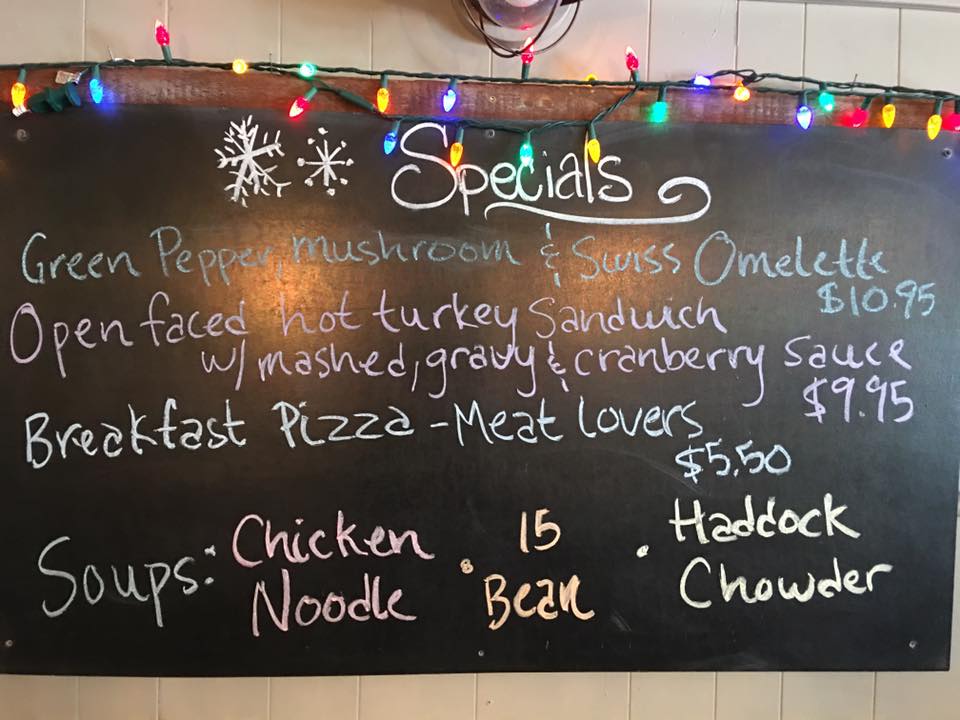 Specials
Green Pepper, mushroom & Swiss Omelette
$10.95
Open faced hot turkey Sandwich
w/ mashed, gravy & cranberry sauce
$9.95
Breakfast Pizza - Meat lovers
$5.50
Soups: Chicken Noodle • 15 Bean • Haddock Chowder